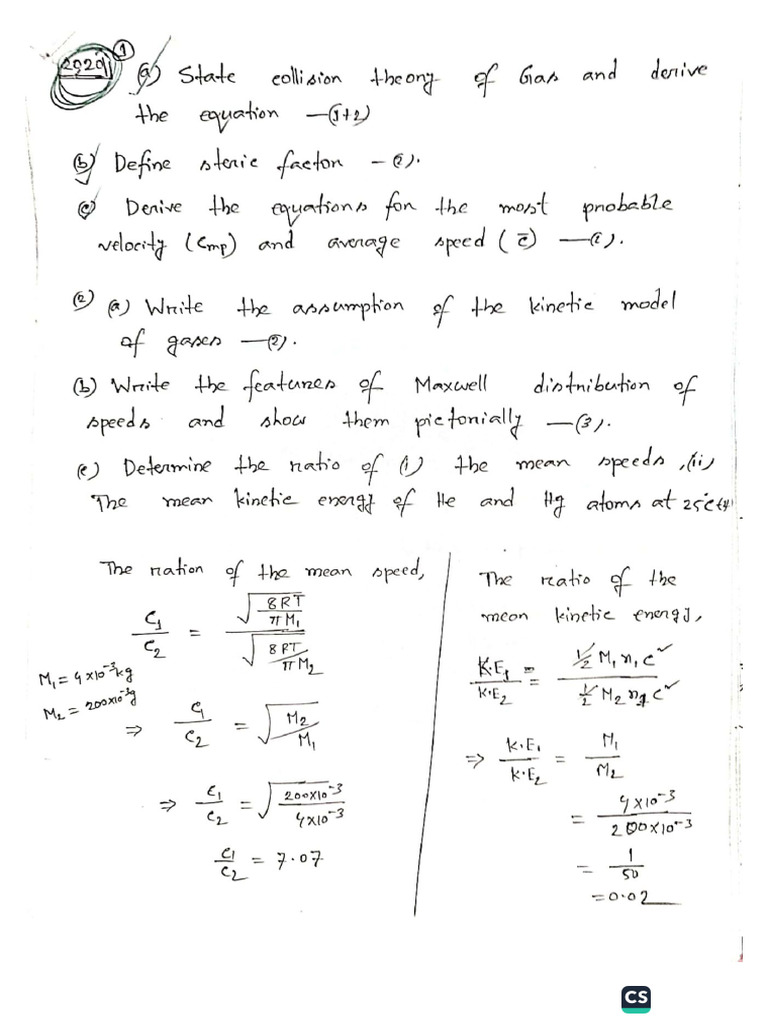 2020
1
(a) State collision theory of Gas and derive
the equation —(1+2)
(b) Define steric factor —(2).
(c) Derive the equations for the most probable
velocity (Cmp) and average speed (c̄) —(2).
(2) (a) Write the assumption of the kinetic model
of gases —(2).
(b) Write the features of Maxwell distribution of
speeds and show them pictorially —(3).
(c) Determine the ratio of (i) the mean speeds, (ii)
The mean kinetic energy of He and Hg atoms at 25°C
The ration of the mean speed,
C₁/C₂ = √(8RT/πM₁) / √(8RT/πM₂)
M₁ = 4×10⁻³kg
M₂ = 200×10⁻³g
⇒ C₁/C₂ = √(M₂/M₁)
⇒ C₁/C₂ = √(200×10⁻³/4×10⁻³)
C₁/C₂ = 7.07
The ratio of the
mean kinetic energy,
K.E₁/K.E₂ = ½ M₁ n₁ C² / ½ M₂ n₂ C²
⇒ K.E₁/K.E₂ = M₁/M₂
= 4×10⁻³/200×10⁻³
= 1/50
= 0.02
CS